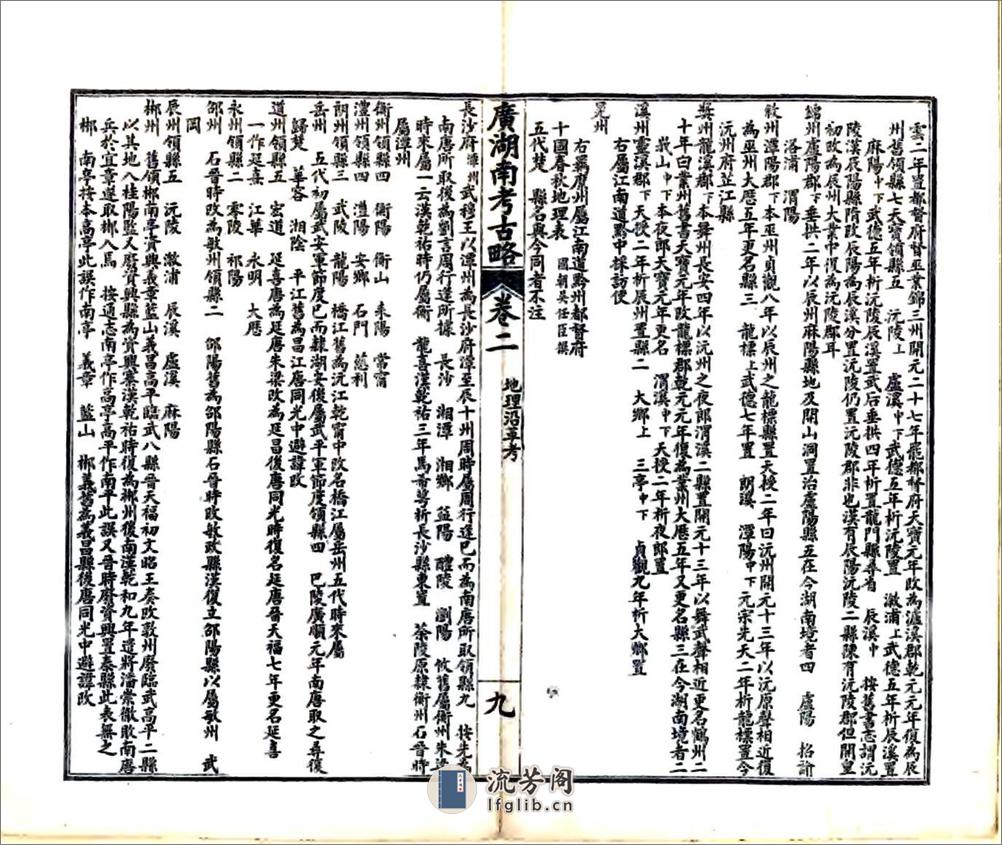 雲二年置都督府督巫業錦三州開元二十七年罷都督府天寶元年改為瀘溪郡乾元元年復為辰
州舊領縣七天寶領縣五 沅陵上 盧溪中下武德五年析沅陵置 漵浦上武德五年析辰溪置
麻陽中下武德五年析沅陵辰溪置武后垂拱四年析置龍門縣尋省 辰溪中 按舊書志謂沅
陵漢辰陽縣隋改辰陽為辰溪分置沅陵仍置沅陵郡非也漢有辰陽沅陵二縣陳有沅陵郡但開皇
初改為辰州大業中復為沅陵郡耳
錦州盧陽郡下垂拱二年以辰州麻陽縣地及開山洞置治盧陽縣五在今湖南境者四 盧陽 招諭
洛浦 渭陽
敘州潭陽郡下本巫州貞觀八年以辰州之龍標縣置天授二年曰沅州開元十三年以沅原聲相近復
為巫州大曆五年更名縣三 龍標上武德七年置 朗溪 潭陽中下元宗先天二年析龍標置今
沅州府芷江縣
獎州龍溪郡下本舞州長安四年以沅州之夜郎渭溪二縣置開元十三年以舞武聲相近更名鶴州二
十年曰業州舊書天寶元年改龍標郡乾元元年復為業州大曆五年又更名縣三在今湖南境者二
峩山中下本夜郎天寶元年更名 渭溪中下天授二年析夜郎置
溪州靈溪郡下天授二年析辰州置縣二 大鄉上 三亭中下 貞觀九年析大鄉置
右屬江南道黔中採訪使
晃州
右羈縻州屬江南道黔州都督府
十國春秋地理表 國朝吳任臣撰
五代楚 縣名與今同者不注
廣湖南考古略 卷二 地理沿革考 九
長沙府潭州武穆王以潭州為長沙府潭至辰十州周時屬周行逢已而為南唐所取領縣九 按先為
南唐所取後為劉言周行逢所據 長沙 湘潭 湘鄉 益陽 醴陵 瀏陽 攸舊屬衡州朱梁
時來屬一云漢乾祐時仍屬衡 龍喜漢乾祐三年馬希萼析長沙縣東置 茶陵原隸衡州石晉時
屬潭州
衡州領縣四 衡陽 衡山 耒陽 常甯
澧州領縣四 澧陽 安鄉 石門 慈利
朗州領縣三 武陵 龍陽 橋江舊為沅江乾甯中改名橋江屬岳州五代時來屬
岳州 五代初屬武安軍節度已而隸湖安後屬武平軍節度領縣四 巴陵廣順元年南唐取之尋復
歸楚 華容 湘陰 平江舊為昌江唐同光中避諱改
道州領縣四 宏道 延喜唐為延唐朱梁改為延昌後唐同光時復名延唐晉天福七年更名延喜
一作延熹 江華 永明 大歷
永州領縣二 零陵 祁陽
邵州 石晉時改為敏州領縣二 邵陽舊為邵陽縣石晉時改敏政縣漢復立邵陽縣以屬敏州 武
岡
辰州領縣五 沅陵 漵浦 辰溪 盧溪 麻陽
郴州 舊領郴南亭資興義章藍山義昌高平臨武八縣晉天福初文昭王奏改敦州廢臨武高平二縣
以其地入桂陽監又廢資興縣為資興寨漢乾祐時復為郴州復南漢乾和九年遣將潘崇徹敗南唐
兵於宜章遂取郴八馬 按通志南亭作高亭高平作南平此誤又晉時廢資興置泰縣此表無之
郴 南亭按本高亭此誤作南亭 義章 藍山 郴義舊為義昌縣後唐同光中避諱改
流芳阁
lfglib.cn